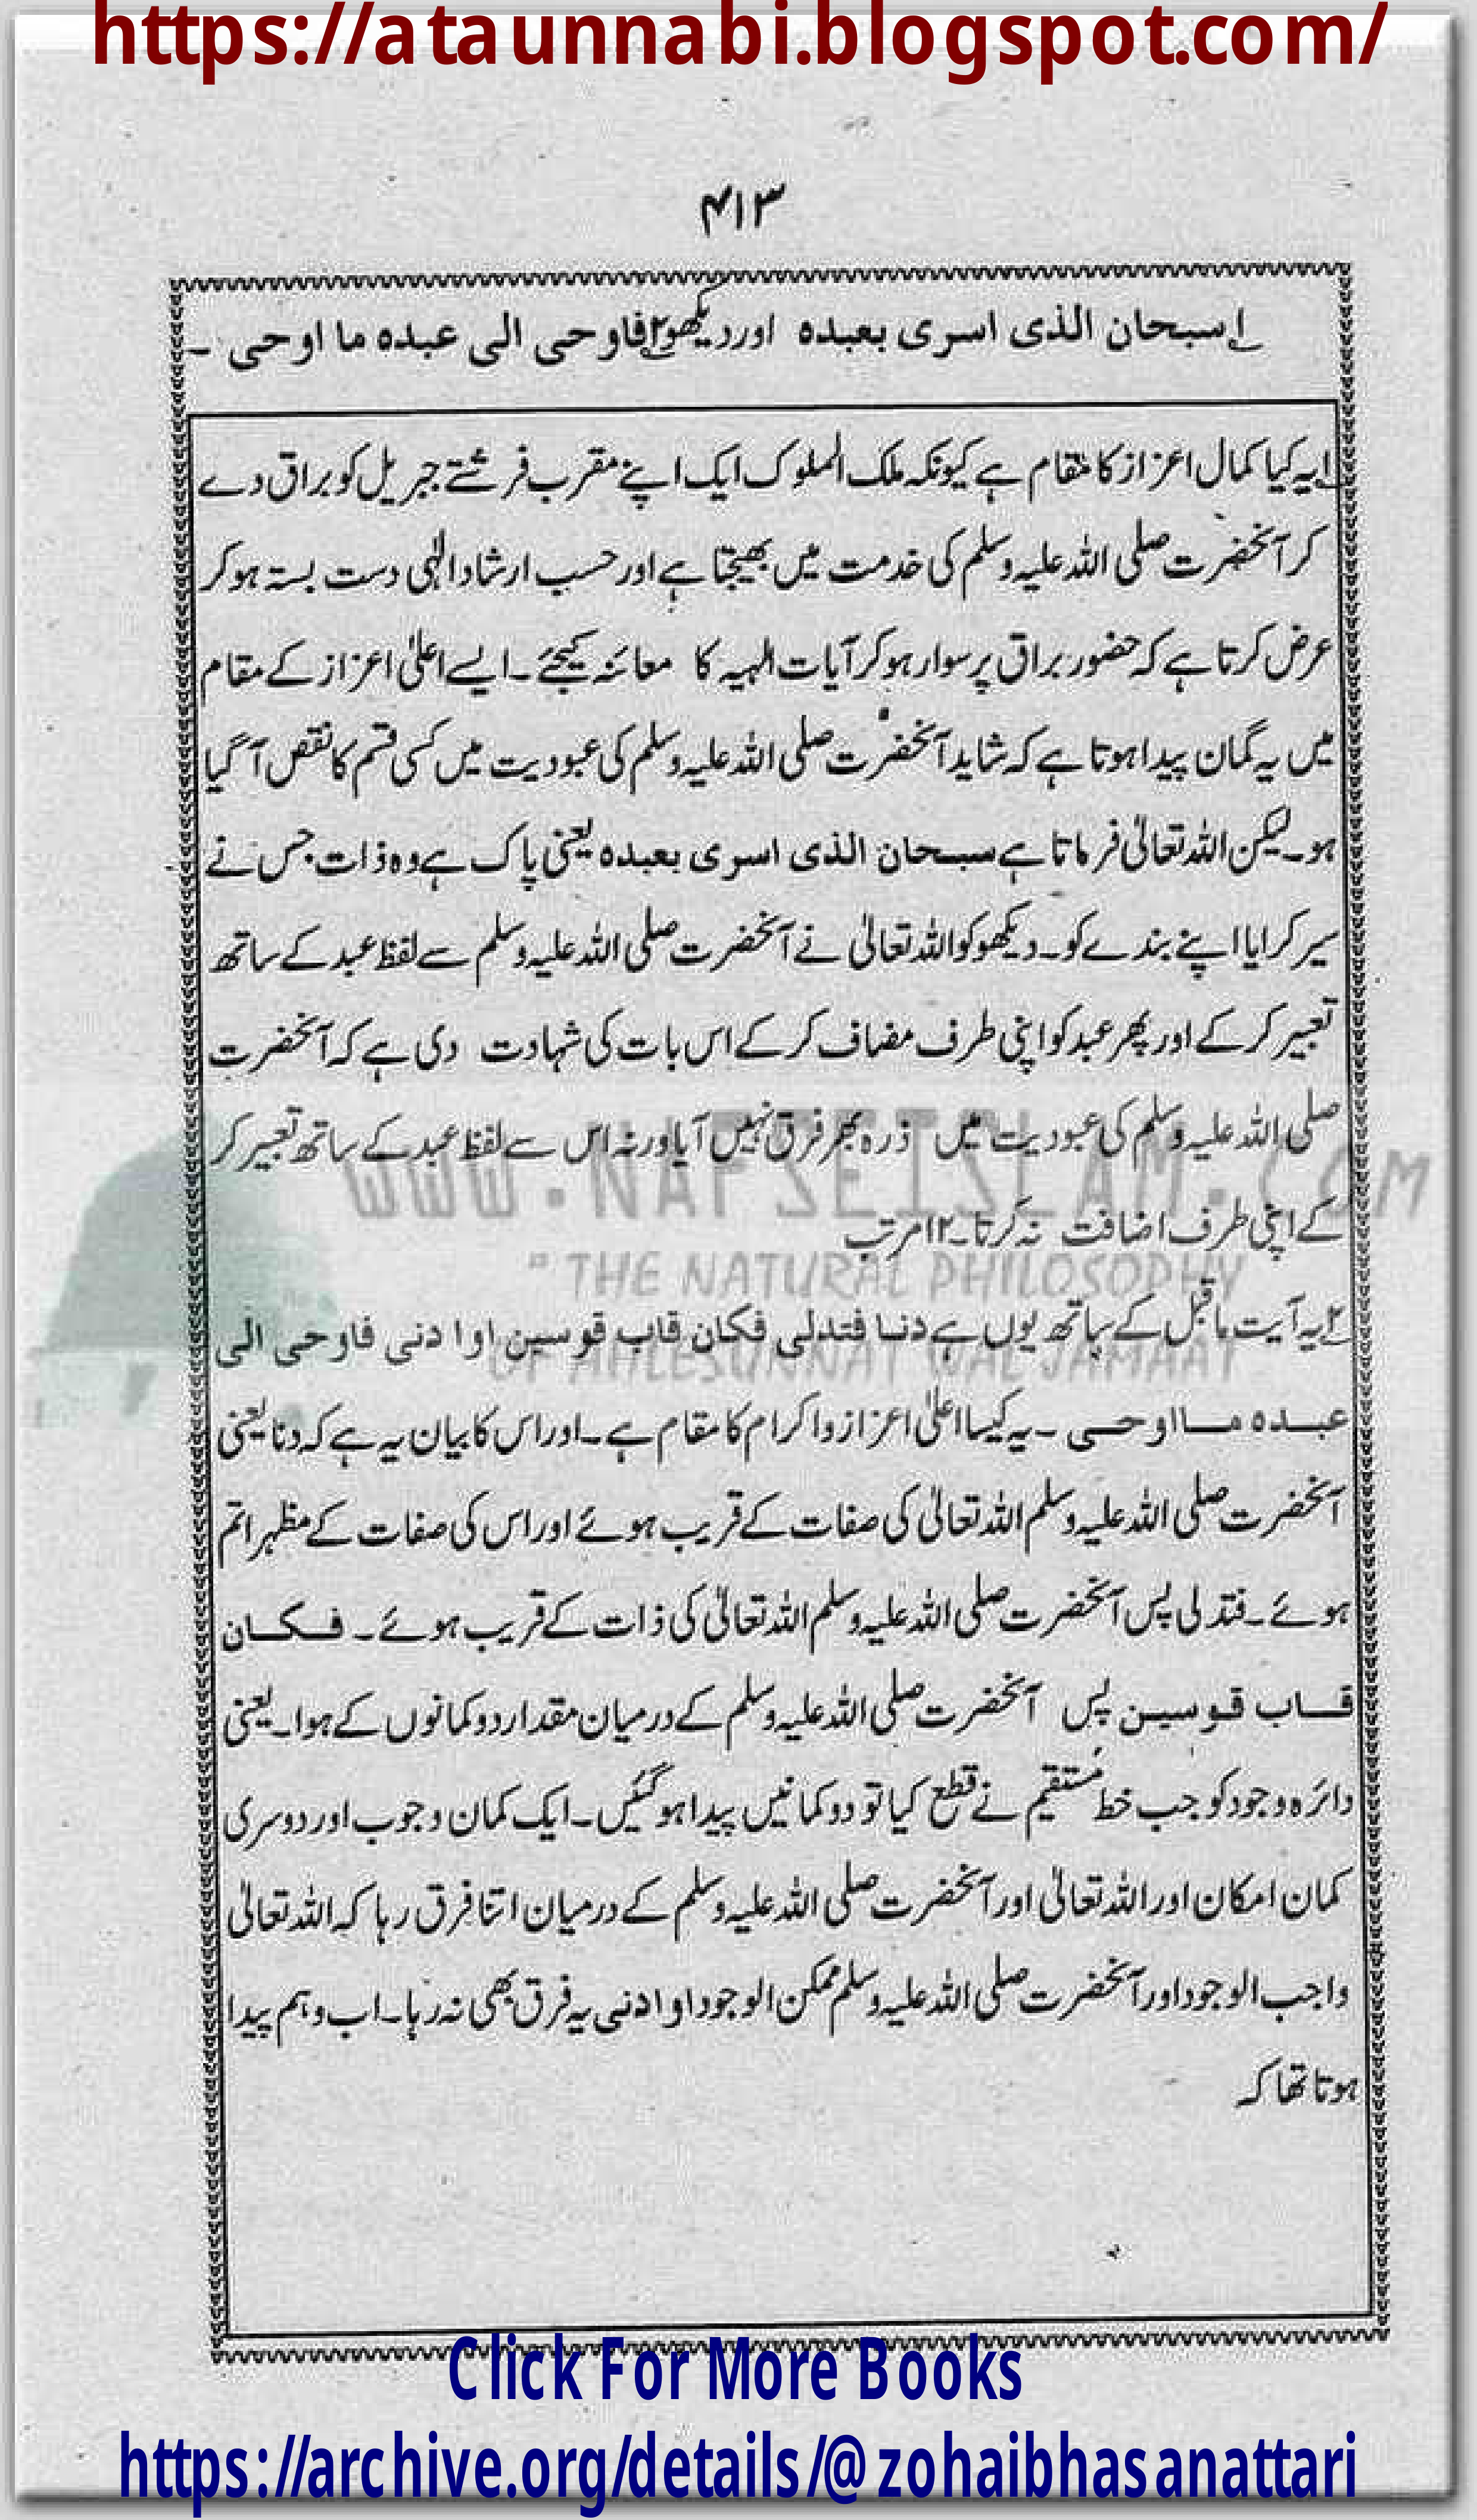 https://ataunnabi.blogspot.com/
۴۱۳
۱ سبحان الذی اسری بعبدہ اور دیکھو ۲ فاوحی الی عبدہ ما اوحی ۔
۱ یہ کیا کمال اعزاز کا مقام ہے کیونکہ ملک الملوک ایک اپنے مقرب فرشتے جبریل کو براق دے
کر آنحضرت صلی اللہ علیہ وسلم کی خدمت میں بھیجتا ہے اور حسب ارشاد الٰہی دست بستہ ہو کر
عرض کرتا ہے کہ حضور براق پر سوار ہو کر آیات الٰہیہ کا معائنہ کیجئے ۔ ایسے اعلیٰ اعزاز کے مقام
میں یہ گمان پیدا ہوتا ہے کہ شاید آنحضرت صلی اللہ علیہ وسلم کی عبودیت میں کسی قسم کا نقص آ گیا
ہو۔ لیکن اللہ تعالیٰ فرماتا ہے سبحان الذی اسری بعبدہ یعنی پاک ہے وہ ذات جس نے
سیر کرایا اپنے بندے کو۔ دیکھو کو اللہ تعالیٰ نے آنحضرت صلی اللہ علیہ وسلم سے لفظ عبد کے ساتھ
تعبیر کر کے اور پھر عبد کو اپنی طرف مضاف کر کے اس بات کی شہادت دی ہے کہ آنحضرت
صلی اللہ علیہ وسلم کی عبودیت میں ذرہ بھر فرق نہیں آیا ورنہ اس سے لفظ عبد کے ساتھ تعبیر کر
کے اپنی طرف اضافت نہ کرتا۔ ۱۲ مرتب
WWW.NAFSEISLAM.COM
"THE NATURAL PHILOSOPHY
OF AHLESUNNAT WAL JAMAAT"
۲ یہ آیت ماقبل کے ساتھ یوں ہے دنا فتدلی فکان قاب قوسین اوا دنی فاوحی الی
عبدہ ما اوحی ۔ یہ کیسا اعلیٰ اعزاز واکرام کا مقام ہے ۔ اور اس کا بیان یہ ہے کہ دنا یعنی
آنحضرت صلی اللہ علیہ وسلم اللہ تعالیٰ کی صفات کے قریب ہوئے اور اس کی صفات کے مظہر اتم
ہوئے ۔ فتدلی پس آنحضرت صلی اللہ علیہ وسلم اللہ تعالیٰ کی ذات کے قریب ہوئے ۔ فکان
قاب قوسین پس آنحضرت صلی اللہ علیہ وسلم کے درمیان مقدار دو کمانوں کے ہوا۔ یعنی
دائرہ وجود کو جب خط مستقیم نے قطع کیا تو دو کمانیں پیدا ہو گئیں ۔ ایک کمان وجوب اور دوسری
کمان امکان اور اللہ تعالیٰ اور آنحضرت صلی اللہ علیہ وسلم کے درمیان اتنا فرق رہا کہ اللہ تعالیٰ
واجب الوجود اور آنحضرت صلی اللہ علیہ وسلم ممکن الوجود او ادنی یہ فرق بھی نہ رہا۔ اب وہم پیدا
ہوتا تھا کہ
Click For More Books
https://archive.org/details/@zohaibhasanattari